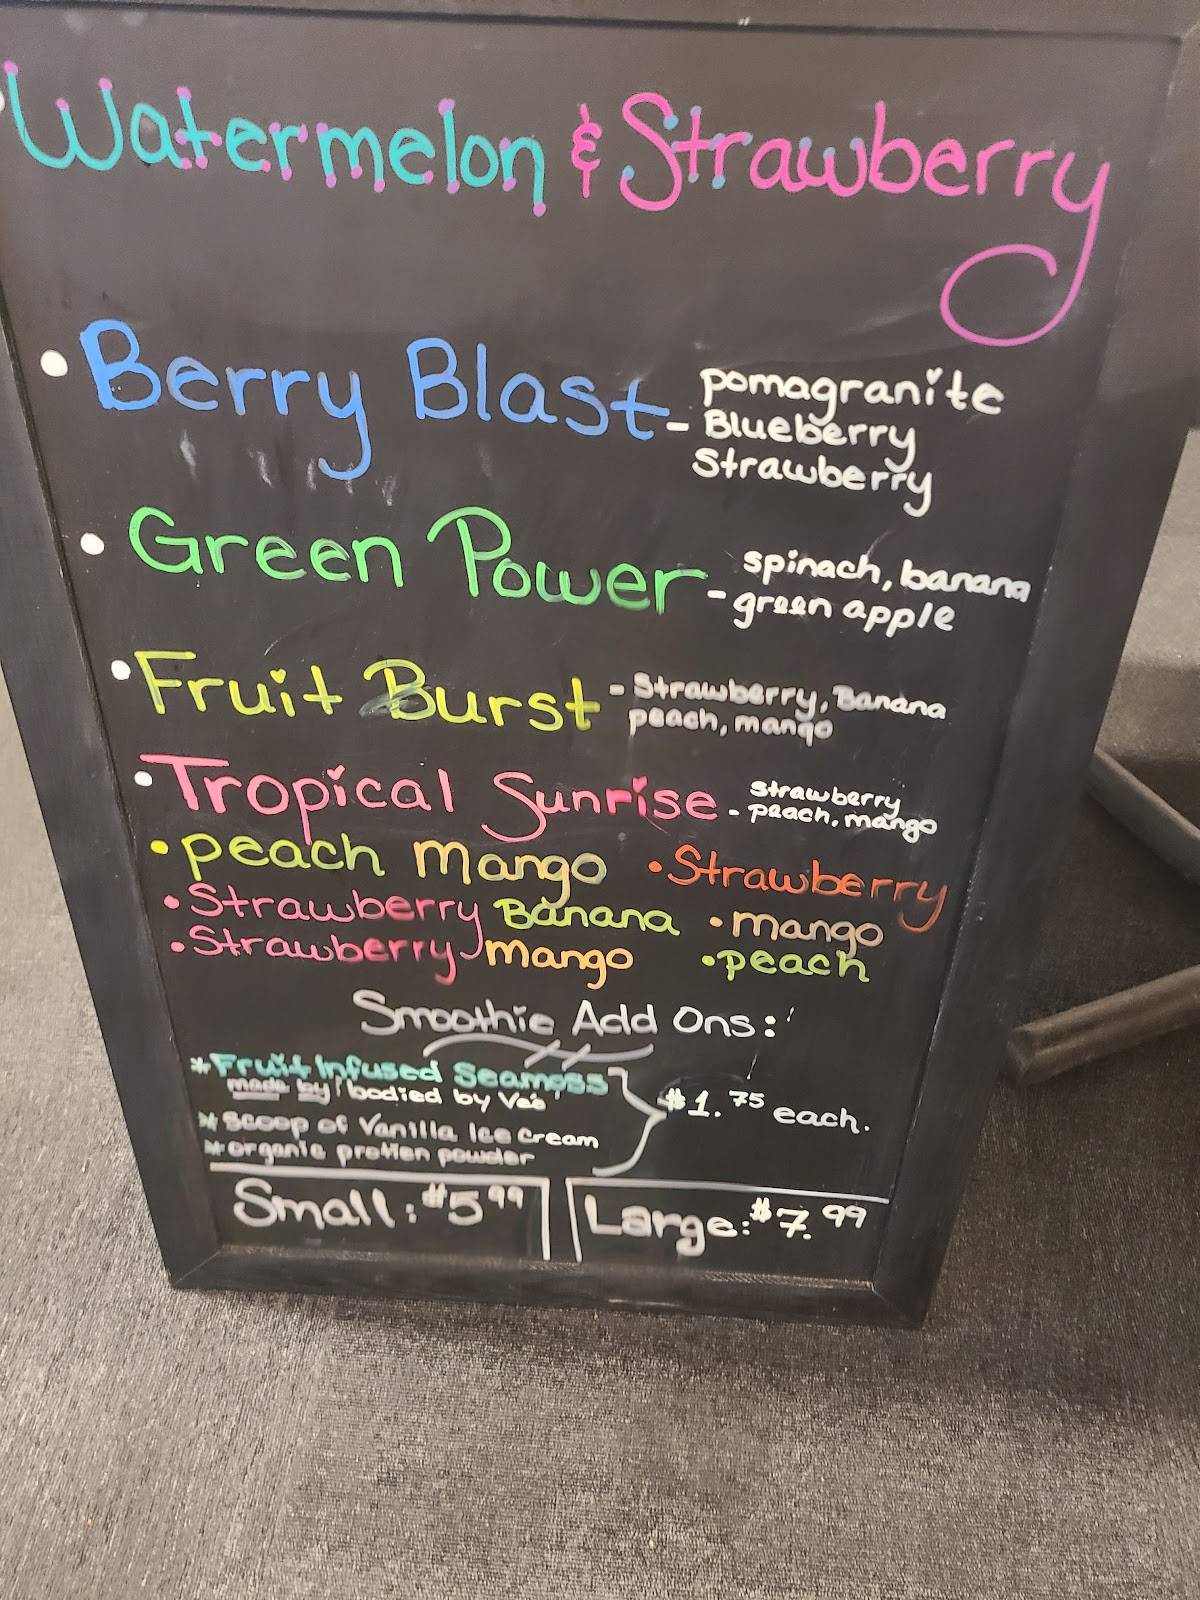 Watermelon & Strawberry
• Berry Blast - pomagranite
Blueberry
Strawberry
• Green Power - spinach, banana
green apple
• Fruit Burst - Strawberry, Banana
peach, mango
• Tropical Sunrise - strawberry
peach, mango
• peach mango • Strawberry
• Strawberry Banana • mango
• Strawberry mango • peach
Smoothie Add Ons:
* Fruit Infused Seamoss
made by / bodied by Vee
* scoop of Vanilla Ice Cream
* organic protien powder
$1.75 each.
Small: $5 99
Large: $7.99